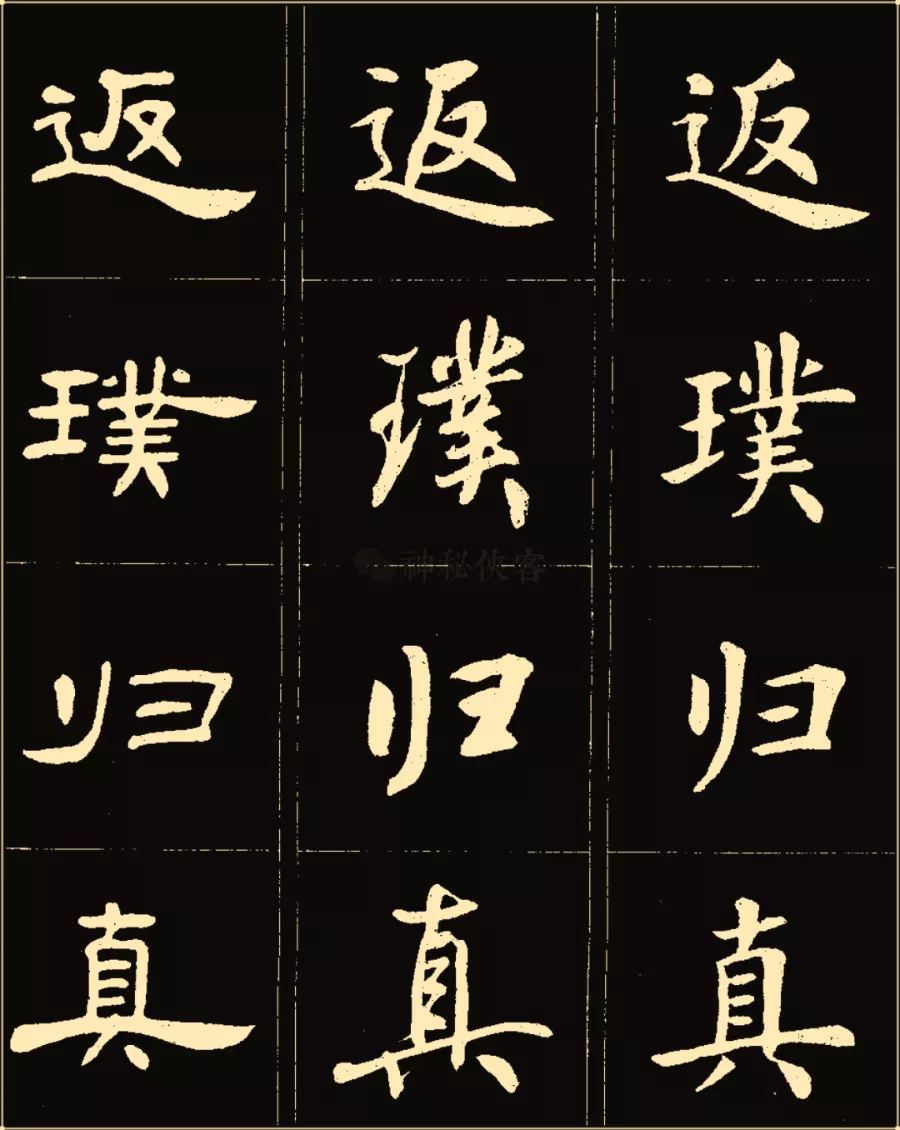 返璞归真
返璞归真
返璞归真
神秘侠客